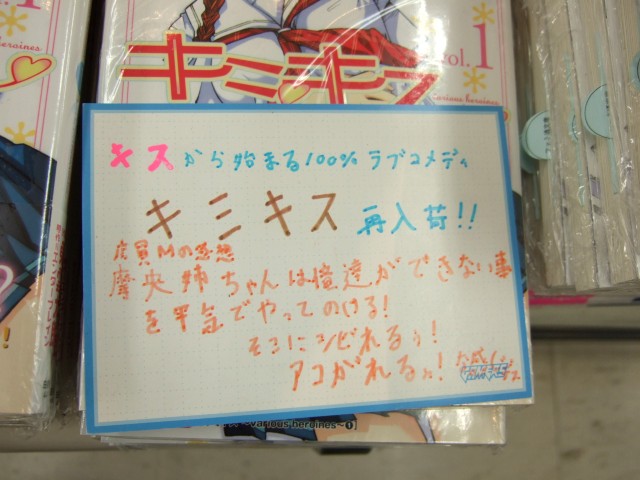 vol.1
various heroines
キミキス
キスから始まる100%ラブコメディ
キミキス 再入荷!!
店員Mの感想
摩央姉ちゃんは僕達ができない事
を平気でやってのける!
そこにシビれるぅ!
アコがれるぅ!
~various heroines~①